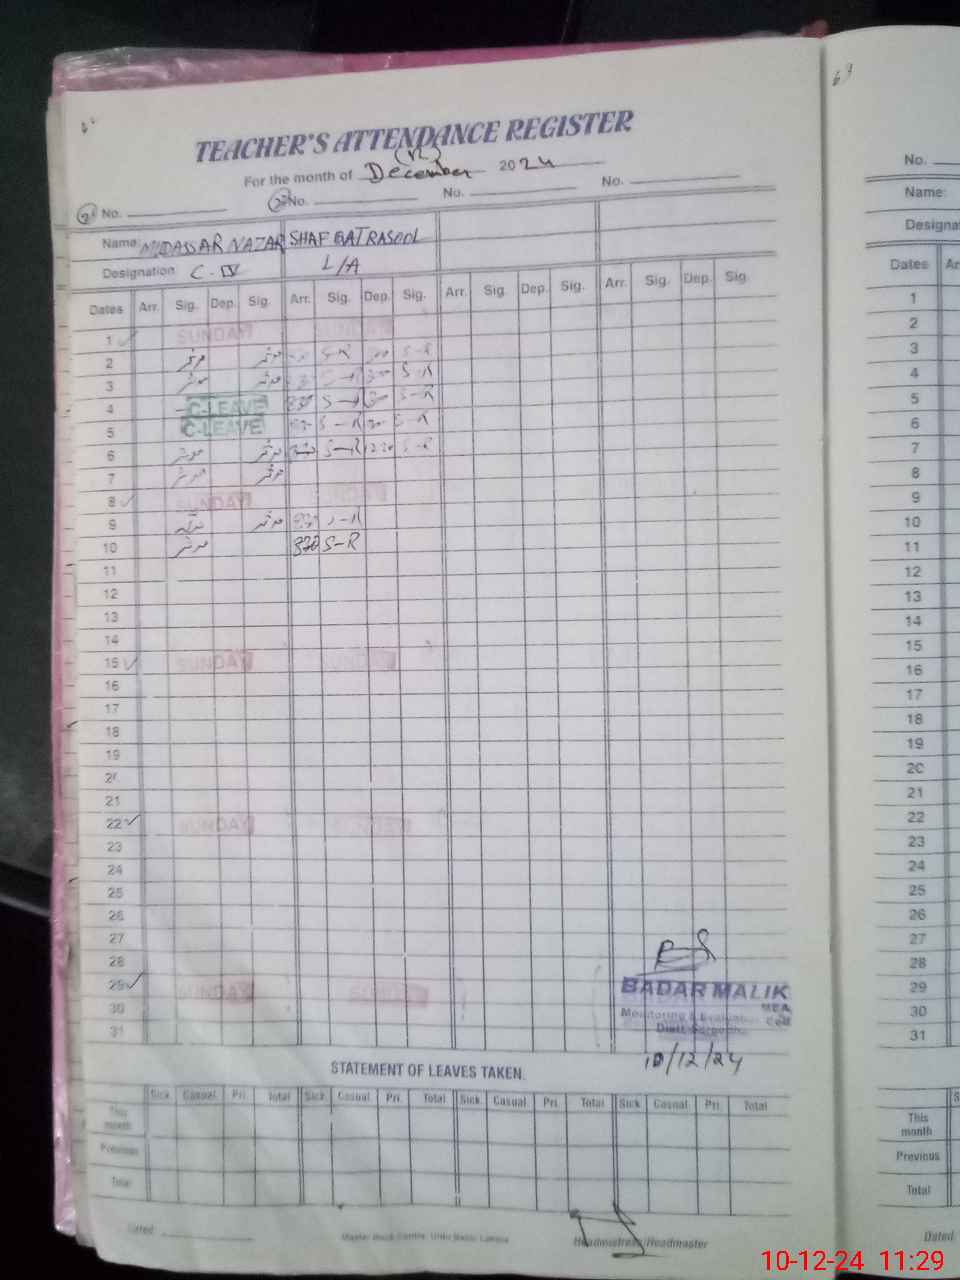 69
TEACHER'S ATTENDANCE REGISTER
(12)
For the month of December 2024
No. No. No. No.
Name: MUDASSAR NAZAR SHAFQAT RASOOL
Designation C-IV L/A
Dates Arr. Sig. Dep. Sig. Arr. Sig. Dep. Sig. Arr. Sig. Dep. Sig. Arr. Sig. Dep. Sig.
1 SUNDAY SUNDAY
2 S-R 300 S-R
3 S-R 300 S-R
4 C-LEAVE 830 S-R S-R
5 C-LEAVE 830 S-R S-R
6 S-R 1230 S-R
7
8 SUNDAY SUNDAY
9 830 S-R
10 830 S-R
11
12
13
14
15 SUNDAY SUNDAY
16
17
18
19
20
21
22 SUNDAY SUNDAY
23
24
25
26
27
28
29 SUNDAY SUNDAY
30
31
BADAR MALIK
MEA
Monitoring & Evaluation Cell
Distt. Sargodha
10/12/24
STATEMENT OF LEAVES TAKEN.
Sick Casual Pri. Total Sick Casual Pri. Total Sick Casual Pri. Total Sick Casual Pri. Total
This month
Previous
Total
Dated
Master Book Centre, Urdu Bazar, Lahore
Headmistress/Headmaster
No.
Name:
Dates
1
2
3
4
5
6
7
8
9
10
11
12
13
14
15
16
17
18
19
20
21
22
23
24
25
26
27
28
29
30
31
This month
Previous
Total
Dated
10-12-24 11:29